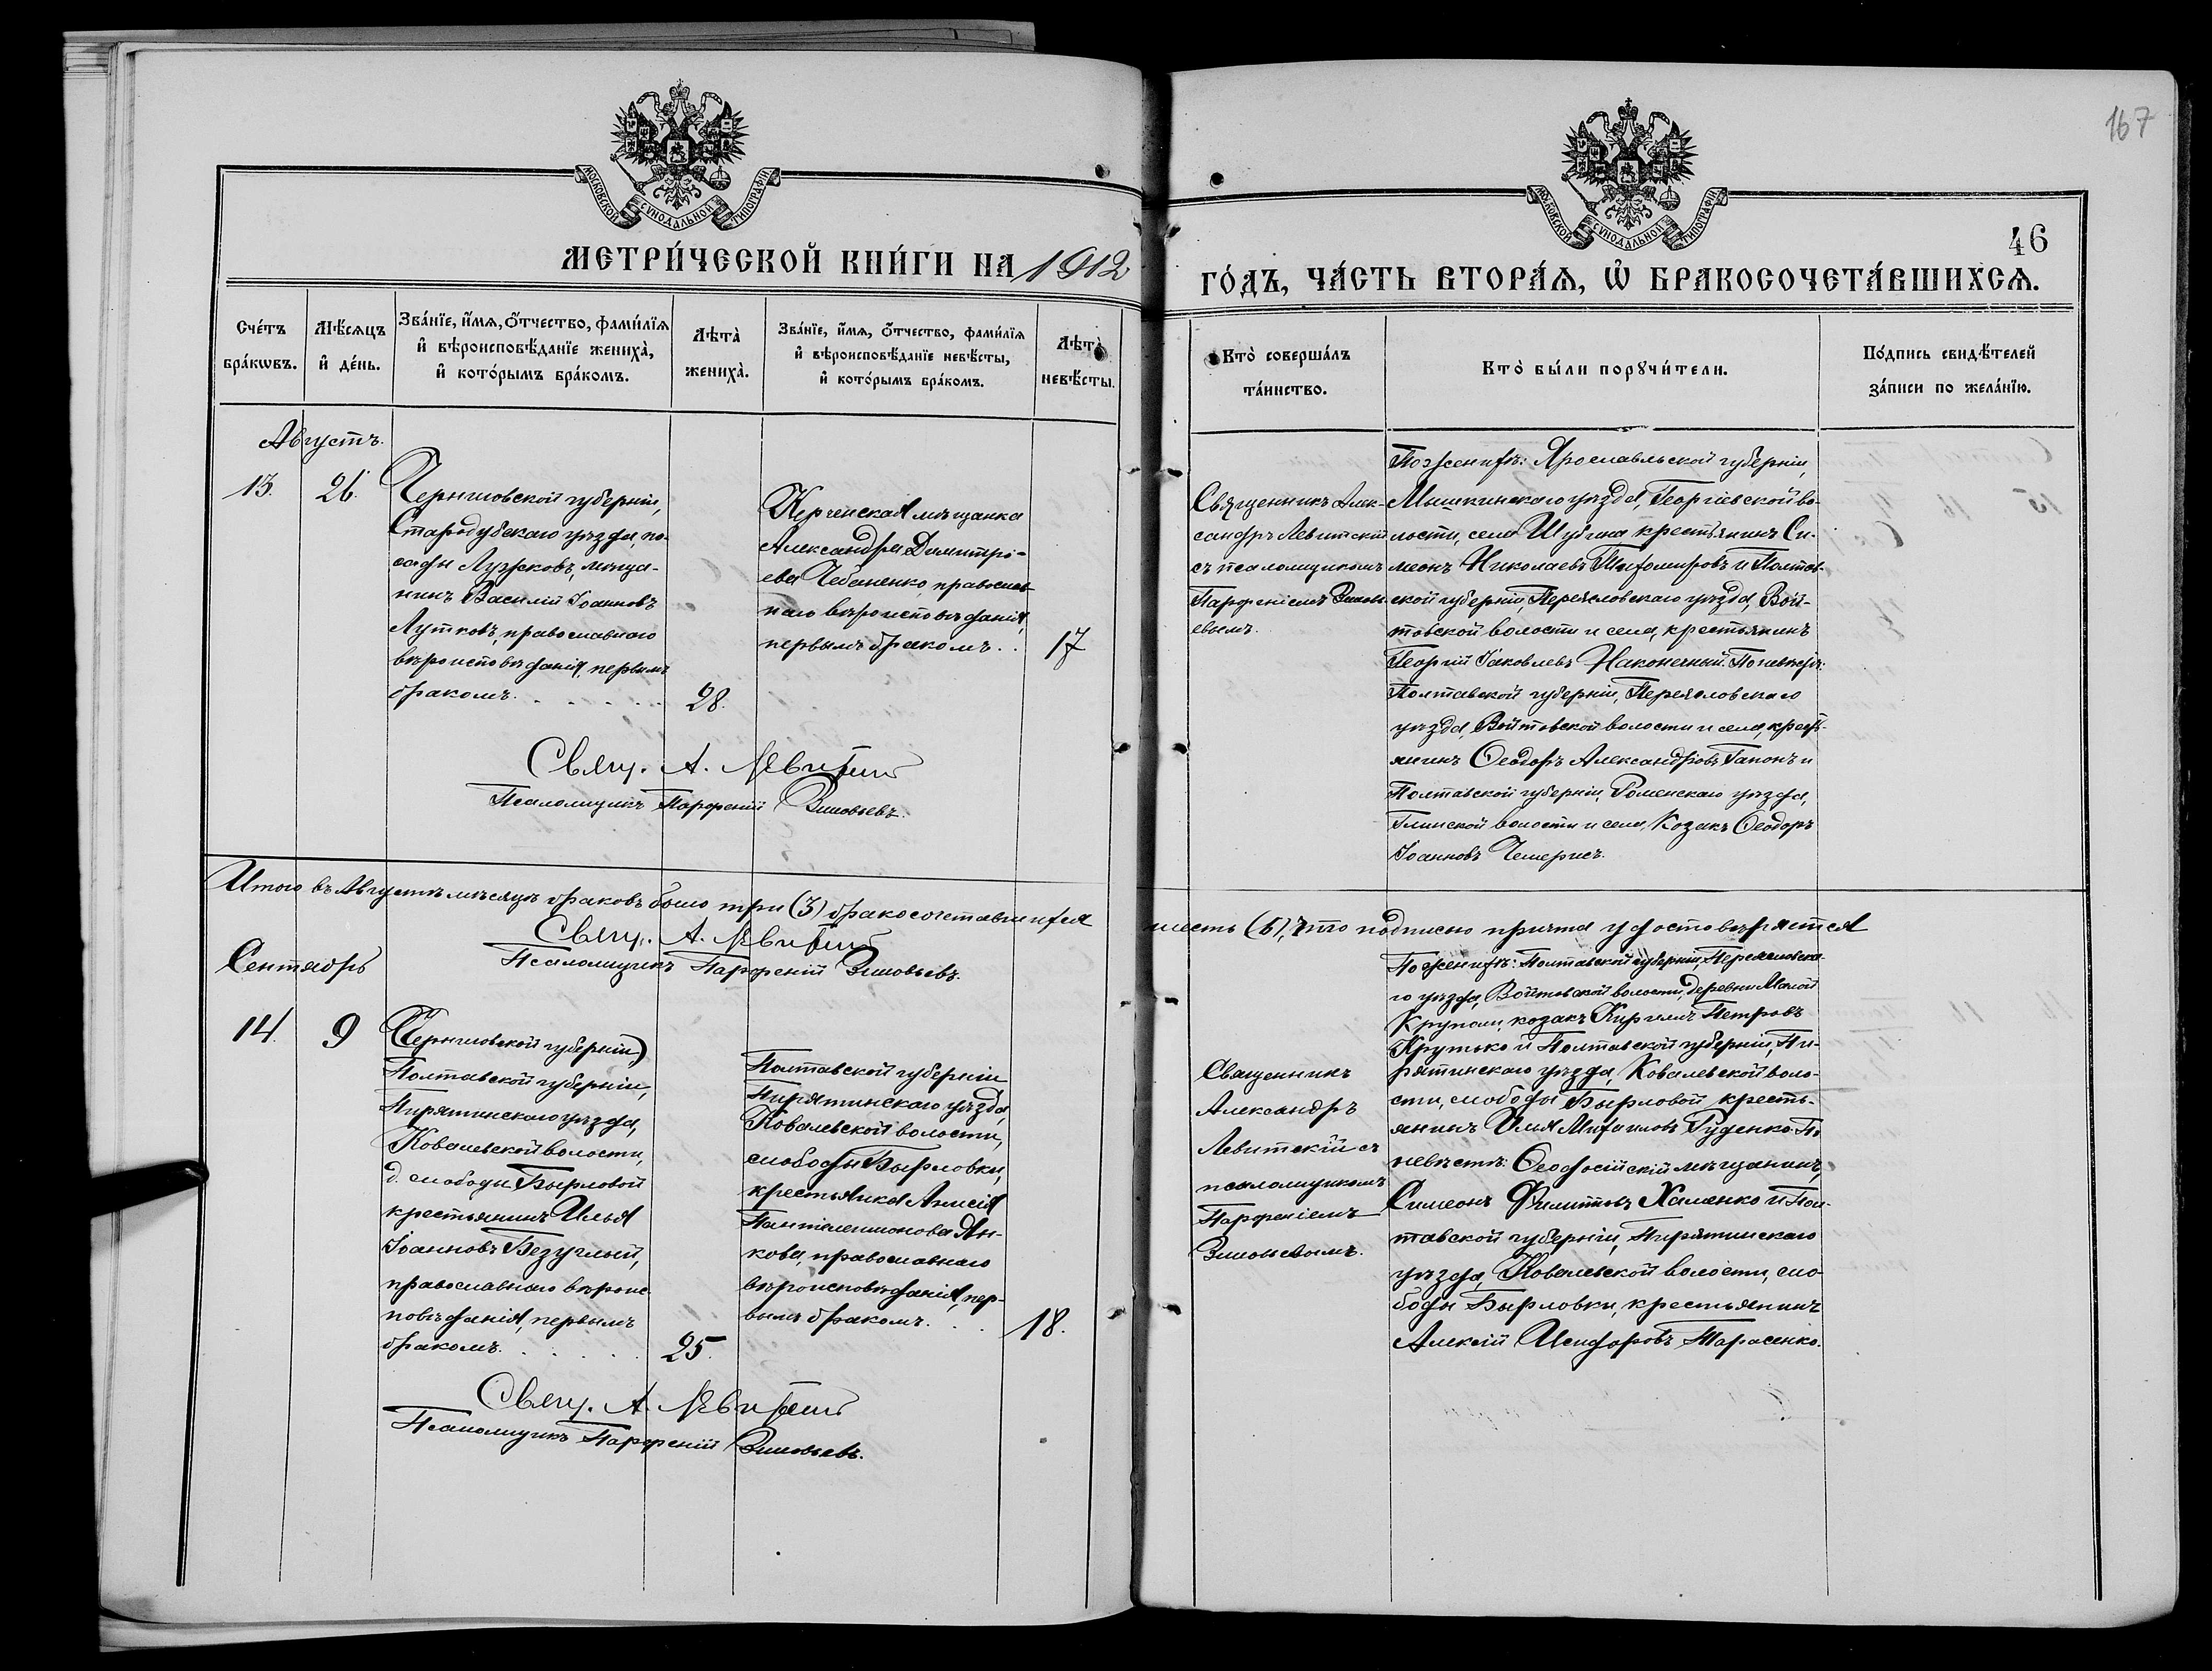 МОСКОВСКОЙ СѴНОДАЛЬНОЙ ТИПОГРАФІИ
МЕТРИ́ЧЕСКОЙ КНИ́ГИ НА 1912
Сче́тъ бра́кѡвъ.
Мѣ́сяцъ и҆ де́нь.
Зва́нїе, и҆́мѧ, ѻ҆́тчество, фами́лїѧ
и҆ вѣроисповѣ́данїе жениха̀,
и҆ кото́рымъ бра́комъ.
Лѣта̀ жениха̀.
Зва́нїе, и҆́мѧ, ѻ҆́тчество, фами́лїѧ
и҆ вѣроисповѣ́данїе невѣ́сты,
и҆ кото́рымъ бра́комъ.
Лѣта̀ невѣ́сты.
Августъ.
13.
26.
Черниговской губерніи,
Стародубскаго уѣзда, по-
сада Лужковъ, мѣща-
нинъ Василій Іоанновъ
Лутковъ, православнаго
вѣроисповѣданія, первымъ
бракомъ.
28.
Керченская мѣщанка
Александра Димитрі-
ева Чебаненко, православ-
наго вѣроисповѣданія,
первымъ бракомъ.
17
Свящ. А. Левитскій
Псаломщикъ Парфеній Зиновьевъ.
Итого въ Августѣ мѣсяцѣ браковъ было три (3) бракосочетавшихся
Свящ. А. Левитскій
Псаломщикъ Парфеній Зиновьевъ.
Сентябрь
14.
9
(Черниговской губерніи)
Полтавской губерніи,
Пирятинскаго уѣзда,
Ковалевской волости,
д. слободы Бырловой
крестьянинъ Илья
Іоанновъ Безуглый,
православнаго вѣроис-
повѣданія, первымъ
бракомъ.
25.
Полтавской губерніи
Пирятинскаго уѣзда,
Ковалевской волости,
слободы Бырловки,
крестьянка Анисія
Пантелеимонова Ян-
кова, православнаго
вѣроисповѣданія, пер-
вымъ бракомъ.
18.
Свящ. А. Левитскій
Псаломщикъ Парфеній Зиновьевъ.
167
МОСКОВСКОЙ СѴНОДАЛЬНОЙ ТИПОГРАФІИ
46
ГО́ДЪ, ЧА́СТЬ ВТОРА́Ѧ, Ѽ БРАКОСОЧЕТА́ВШИХСѦ.
Кто̀ соверша́лъ
та́инство.
Кто̀ бы́ли порꙋчи́тели.
По́дпись свидѣ́телей
за́писи по жела́нїю.
Священникъ Алек-
сандръ Левитскій
съ псаломщикомъ
Парфеніемъ Зиновь-
евымъ.
По женихѣ: Ярославльской губерніи,
Мышкинскаго уѣзда, Георгіевской во-
лости, села Шубина крестьянинъ Си-
меонъ Николаевъ Тихомировъ и Полтав-
ской губерніи, Переясловскаго уѣзда, Вой-
товской волости и села, крестьянинъ
Георгій Іаковлевъ Наконечный. По невѣстѣ:
Полтавской губерніи, Переясловскаго
уѣзда, Войтовской волости и села, крест-
янинъ Ѳеодоръ Александровъ Гапонъ и
Полтавской губерніи, Роменскаго уѣзда,
Глинской волости и села, Козакъ Ѳеодоръ
Іоанновъ Чемерисъ.
шесть (6), что подписью причта удостовѣряется
Священникъ
Александръ
Левитскій съ
псаломщикомъ
Парфеніемъ
Зиновьевымъ.
По женихѣ: Полтавской губерніи, Переясловска-
го уѣзда, Войтовской волости, деревни Малой
Круполи, козакъ Кириллъ Петровъ
Крутько и Полтавской губерніи, Пи-
рятинскаго уѣзда, Ковалевской воло-
сти, слободы Бырловой кресть-
янинъ Илія Михаиловъ Руденко. По
невѣстѣ: Ѳеодосійскій мѣщанинъ,
Симеонъ Филипповъ Хаменко и Пол-
тавской губерніи, Пирятинскаго
уѣзда, Ковалевской волости, сло-
боды Бырловки, крестьянинъ
Алексій Исидоровъ Тарасенко.